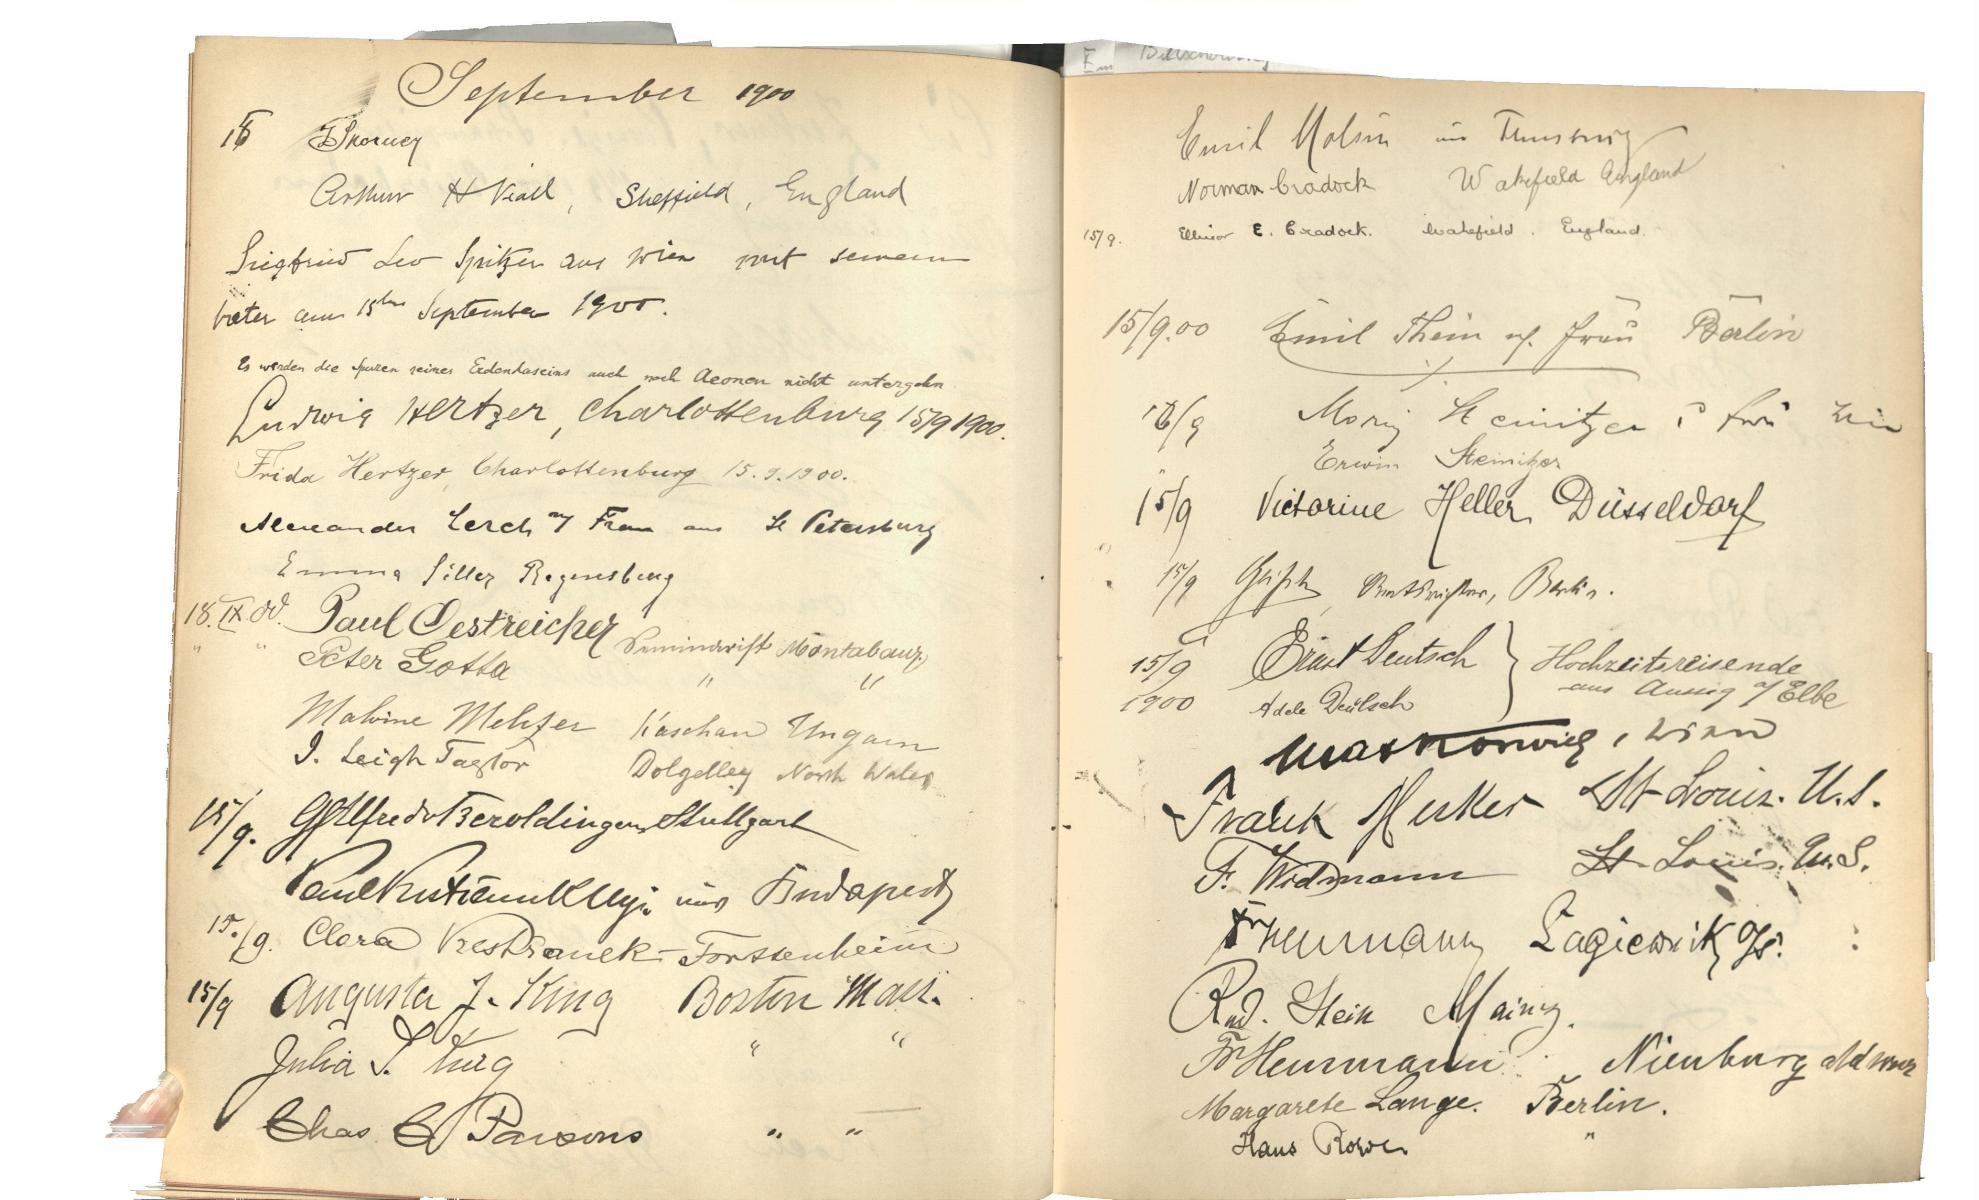 September 1900
Arthur H Viall, Sheffield, England
Siegfried Leo Spitzer aus Wien mit seinem
Vater am 15ten September 1900.
Es werden die Spuren seines Erdendaseins auch nach Aeonen nicht untergehn
Ludwig Hertzer, Charlottenburg 15/9 1900.
Frida Hertzer, Charlottenburg 15.9.1900.
Alexander Lerch Frau aus St Petersburg
Emma Regensburg
18. IX 00. Paul Oestreicher
" " Peter Gotta Montabaur
" "
Malvine Kaschau Ungarn
J. Leigh Taylor Dolgelley North Wales
15/9. Alfred v Beroldingen, Stuttgart
Budapest
15./9. Clara Forstenheim
15/9 Augusta J. King Boston Mass.
Julia S. King " "
Chas C Parsons " "
Emil
Norman Cradock Wakefield England
15/9. Ellinor E. Cradock. Wakefield. England.
15/9.00 Emil Thein Frau Berlin
Steinitzer
Erwin Steinitzer
15/9 Victorine Heller, Düsseldorf
15/9 Berlin.
15/9 Ernst Deutsch Hochzeitsreisende
1900 Adele Deutsch aus Aussig a/Elbe
Wien
Frank Merker St Louis. U.S.
F. Widmann St Louis. U.S.
Heurmann Lagiewnik o/s.
Rud. Stein Mainz.
Fr Heurmann Nienburg
Margarete Lange. Berlin.
Hans "